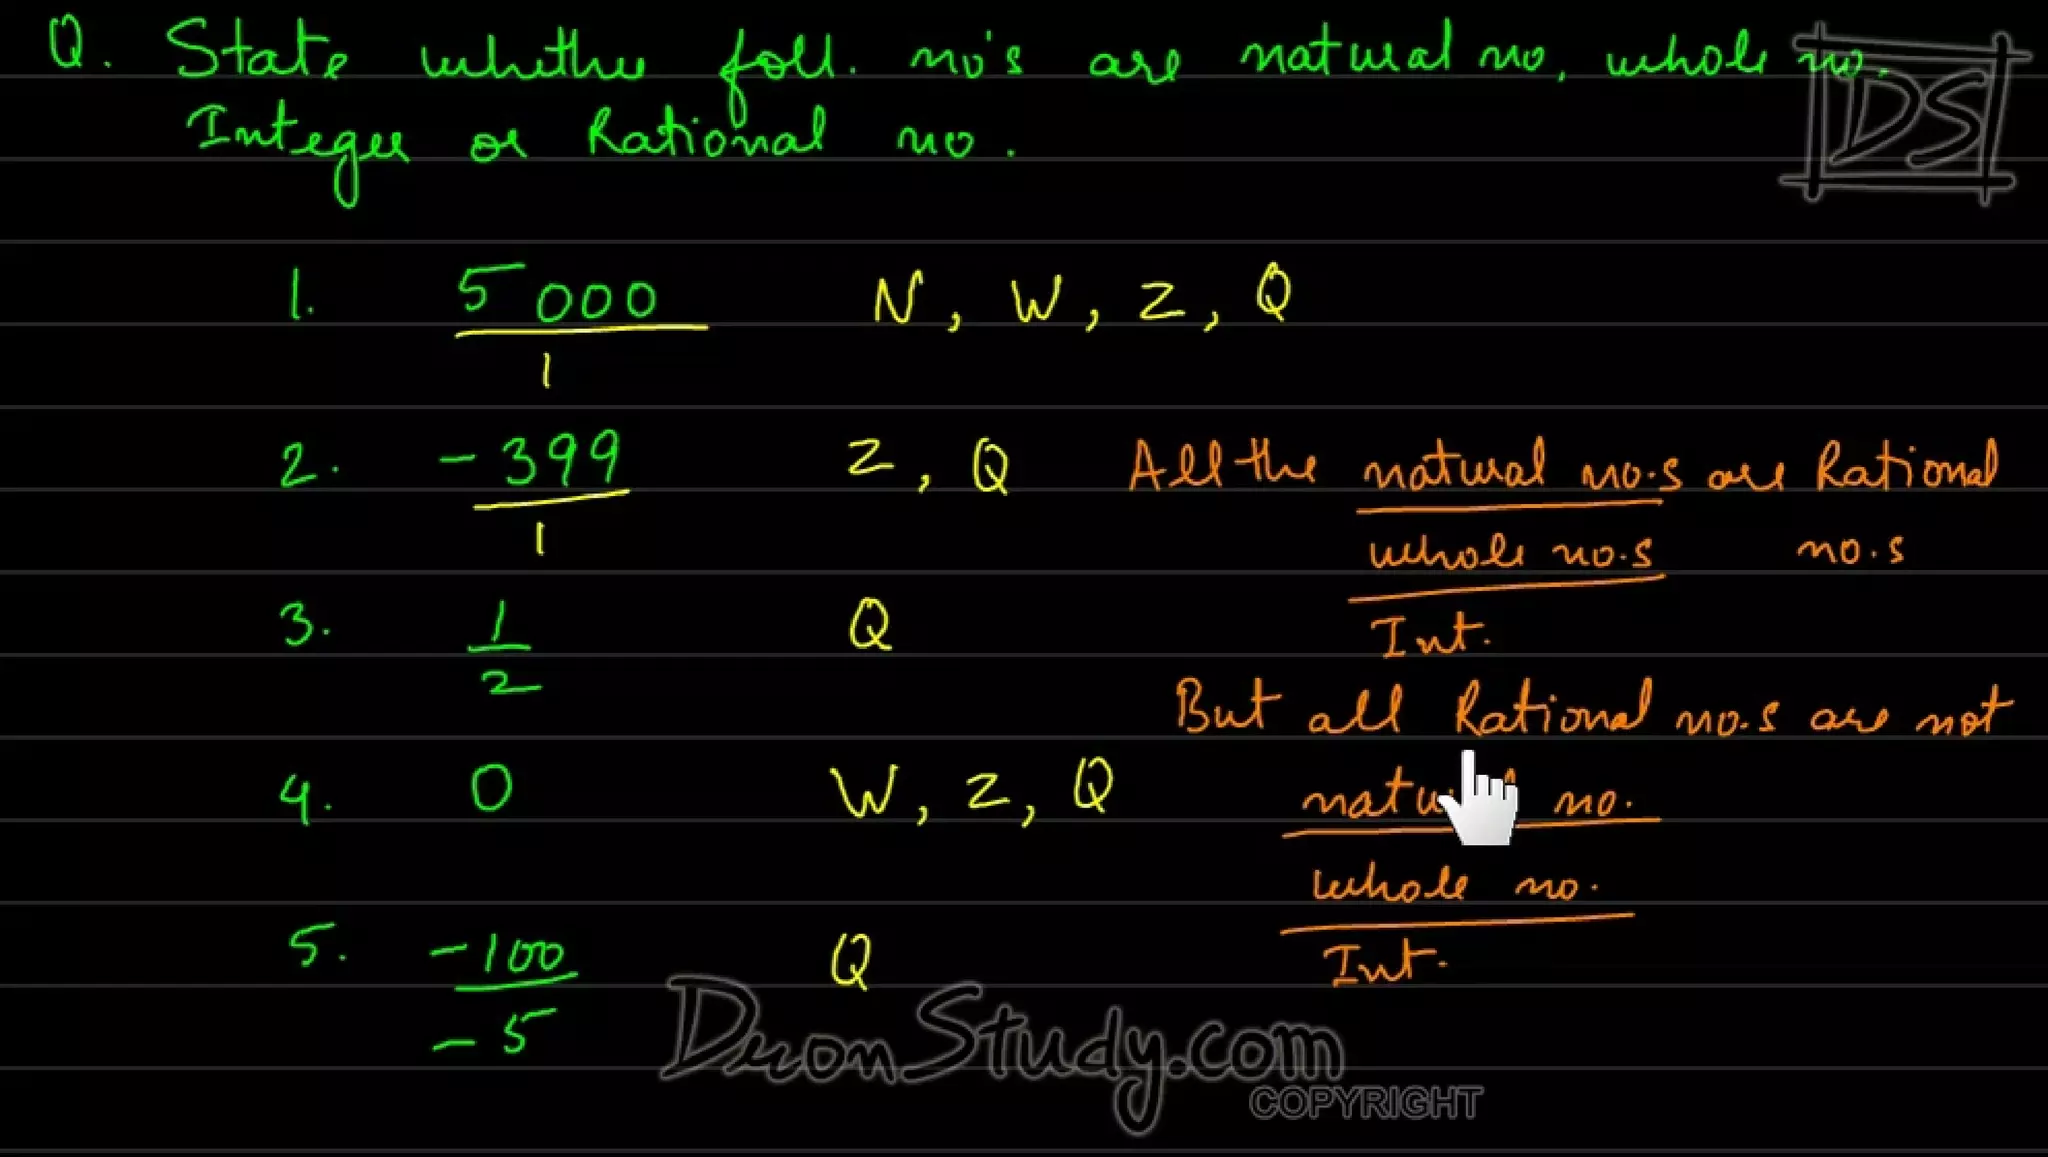 Q. State whether foll. no's are natural no, whole no.
Integer or Rational no.
DS
1. 5000 N, W, Z, Q
1
2. -399 Z, Q All the natural no.s are Rational
1 whole no.s no.s
3. 1 Q Int.
2
But all Rational no.s are not
4. 0 W, Z, Q natural no.
whole no.
5. -100 Q Int.
-5
DronStudy.com
COPYRIGHT